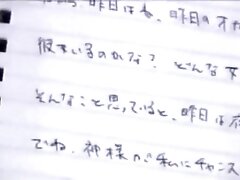 昨日は、昨日の
彼もいるのかな？どんな
そんなこと思っていると、昨日は
でね、神様が私にチャンス